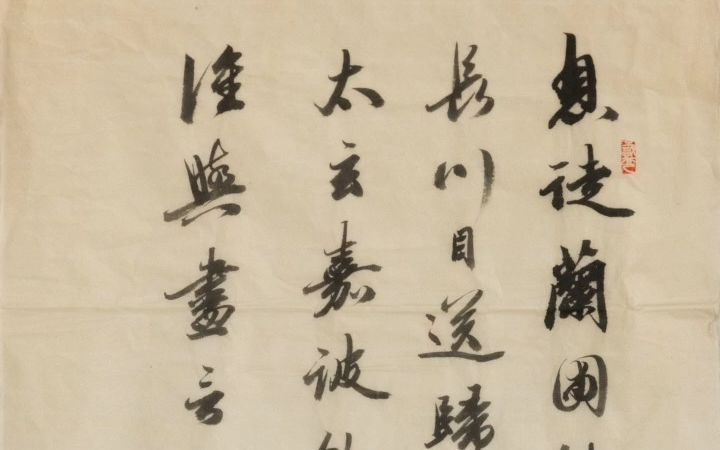 息徒蘭圃
長川目送歸
太玄嘉彼
誰與盡言